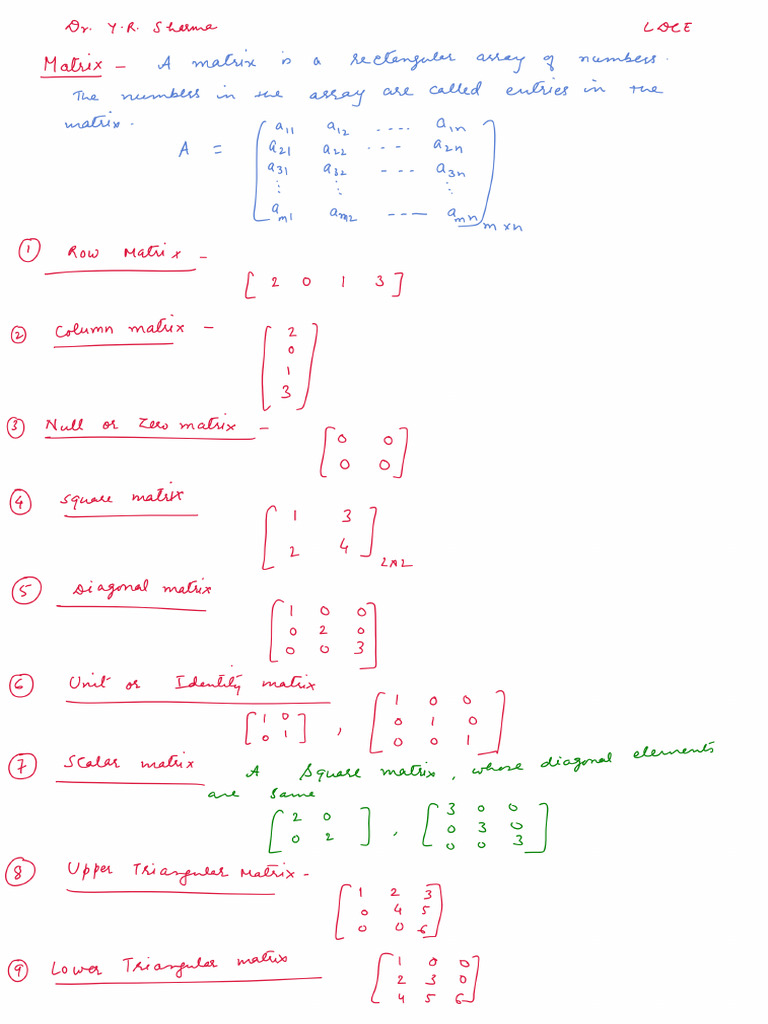 Dr. Y.R. Sharma LDCE
Matrix - A matrix is a rectangular array of numbers.
The numbers in the array are called entries in the
matrix.
A = [ a11 a12 .... a1n
a21 a22 --- a2n
a31 a32 --- a3n
⋮ ⋮ ⋮
am1 am2 ---- amn ] m×n
① Row Matrix -
[ 2 0 1 3 ]
② Column matrix -
[ 2
0
1
3 ]
③ Null or Zero matrix -
[ 0 0
0 0 ]
④ Square matrix
[ 1 3
2 4 ] 2×2
⑤ Diagonal matrix
[ 1 0 0
0 2 0
0 0 3 ]
⑥ Unit or Identity matrix
[ 1 0
0 1 ] , [ 1 0 0
0 1 0
0 0 1 ]
⑦ Scalar matrix A Square matrix, whose diagonal elements
are same
[ 2 0
0 2 ] , [ 3 0 0
0 3 0
0 0 3 ]
⑧ Upper Triangular Matrix -
[ 1 2 3
0 4 5
0 0 6 ]
⑨ Lower Triangular matrix
[ 1 0 0
2 3 0
4 5 6 ]